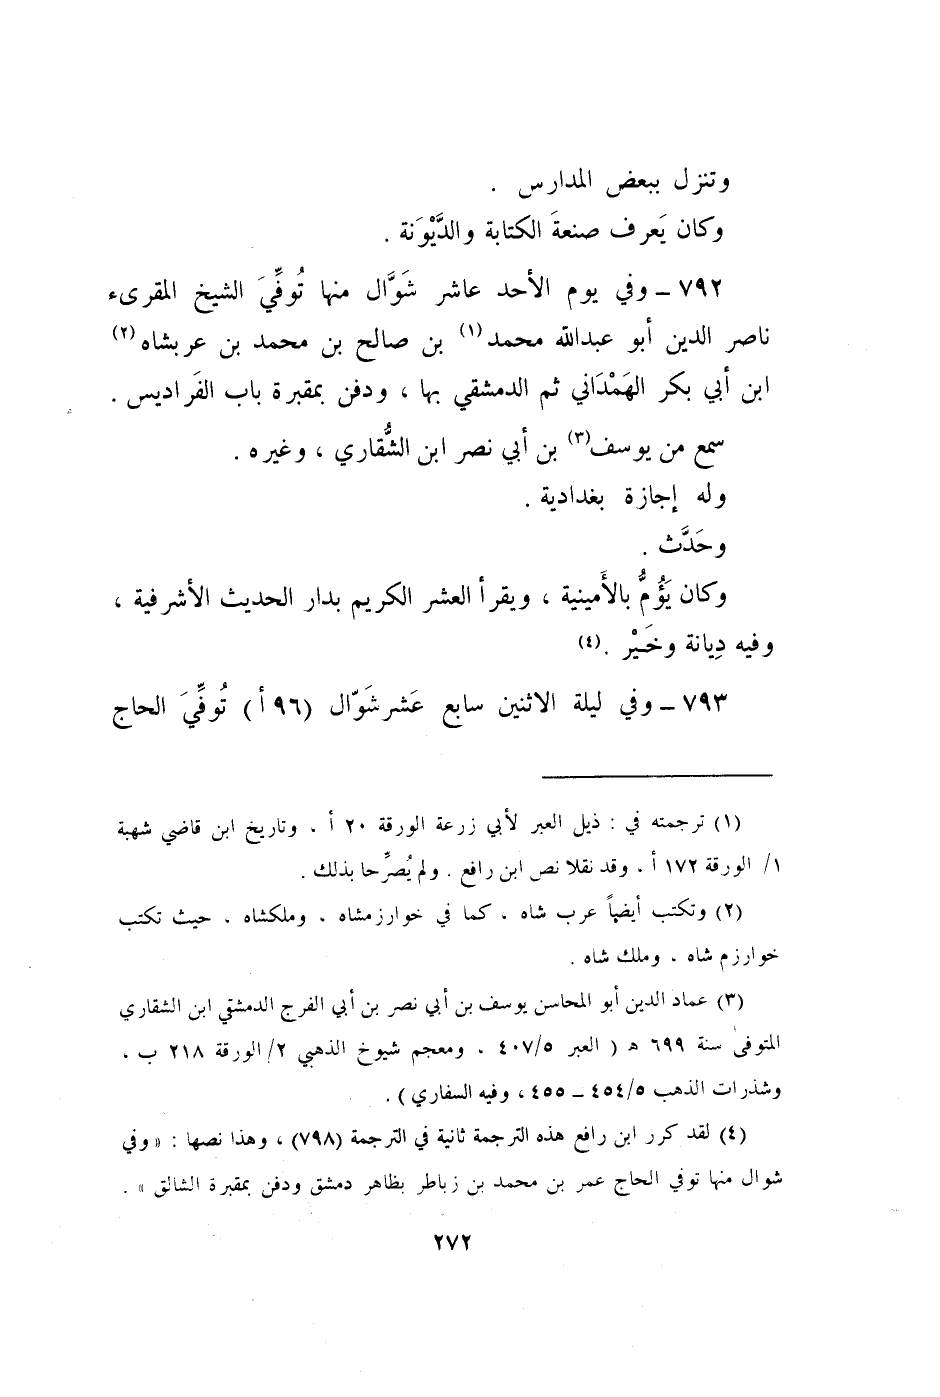 وتنزل ببعض المدارس .
وكان يَعرف صنعةَ الكتابة والدَّيْوَنة .
٧٩٢ – وفي يوم الأحد عاشر شَوَّال منها تُوفِّيَ الشيخ المقرىء
ناصر الدين أبو عبدالله محمد(١) بن صالح بن محمد بن عربشاه(٢)
ابن أبي بكر الهَمْدَاني ثم الدمشقي بها ، ودفن بمقبرة باب الفَراديس .
سمع من يوسف(٣) بن أبي نصر ابن الشُّقاري ، وغيره .
وله إجازة بغدادية .
وحَدَّث .
وكان يَؤُمُّ بالأَمينية ، ويقرأ العشر الكريم بدار الحديث الأشرفية ،
وفيه دِيانة وخَيْر .(٤)
٧٩٣ – وفي ليلة الاثنين سابع عَشر شَوّال (٩٦ أ) تُوفِّيَ الحاج
(١) ترجمته في : ذيل العبر لأبي زرعة الورقة ٢٠ أ . وتاريخ ابن قاضي شهبة
١/ الورقة ١٧٢ أ . وقد نقلا نص ابن رافع . ولم يُصرِّحا بذلك .
(٢) وتكتب أيضاً عرب شاه . كما في خوارزمشاه . وملكشاه . حيث تكتب
خوارزم شاه . وملك شاه .
(٣) عماد الدين أبو المحاسن يوسف بن أبي نصر بن أبي الفرج الدمشقي ابن الشقاري
المتوفىٰ سنة ٦٩٩ ه ( العبر ٤٠٧/٥ . ومعجم شيوخ الذهبي ٢/ الورقة ٢١٨ ب ،
وشذرات الذهب ٤٥٤/٥ – ٤٥٥ ، وفيه السفاري ) .
(٤) لقد كرر ابن رافع هذه الترجمة ثانية في الترجمة (٧٩٨) ، وهذا نصها : « وفي
شوال منها توفي الحاج عمر بن محمد بن زباطر بظاهر دمشق ودفن بمقبرة الشالق » .
٢٧٢